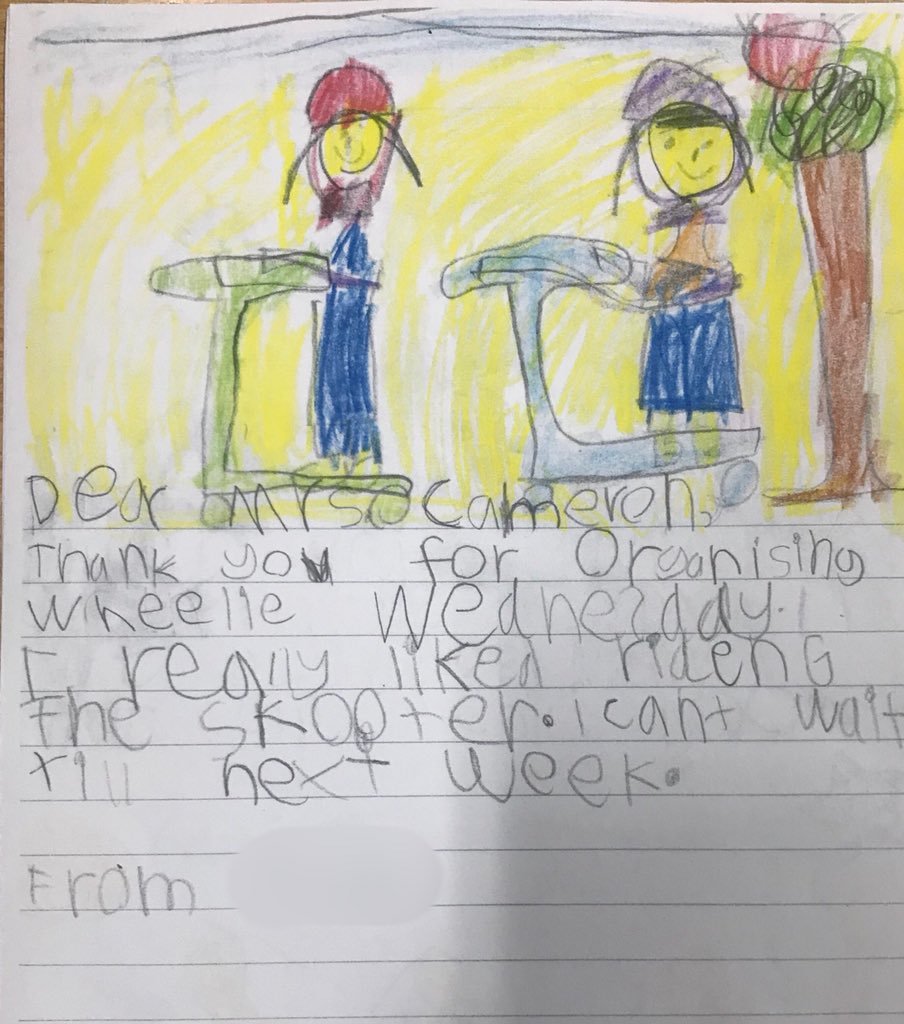 Dear Mrs Cameron,
Thank you for Organising
Wheelie Wednesday.
I really liked rideng
the skooter. I cant wait
till next week.
From